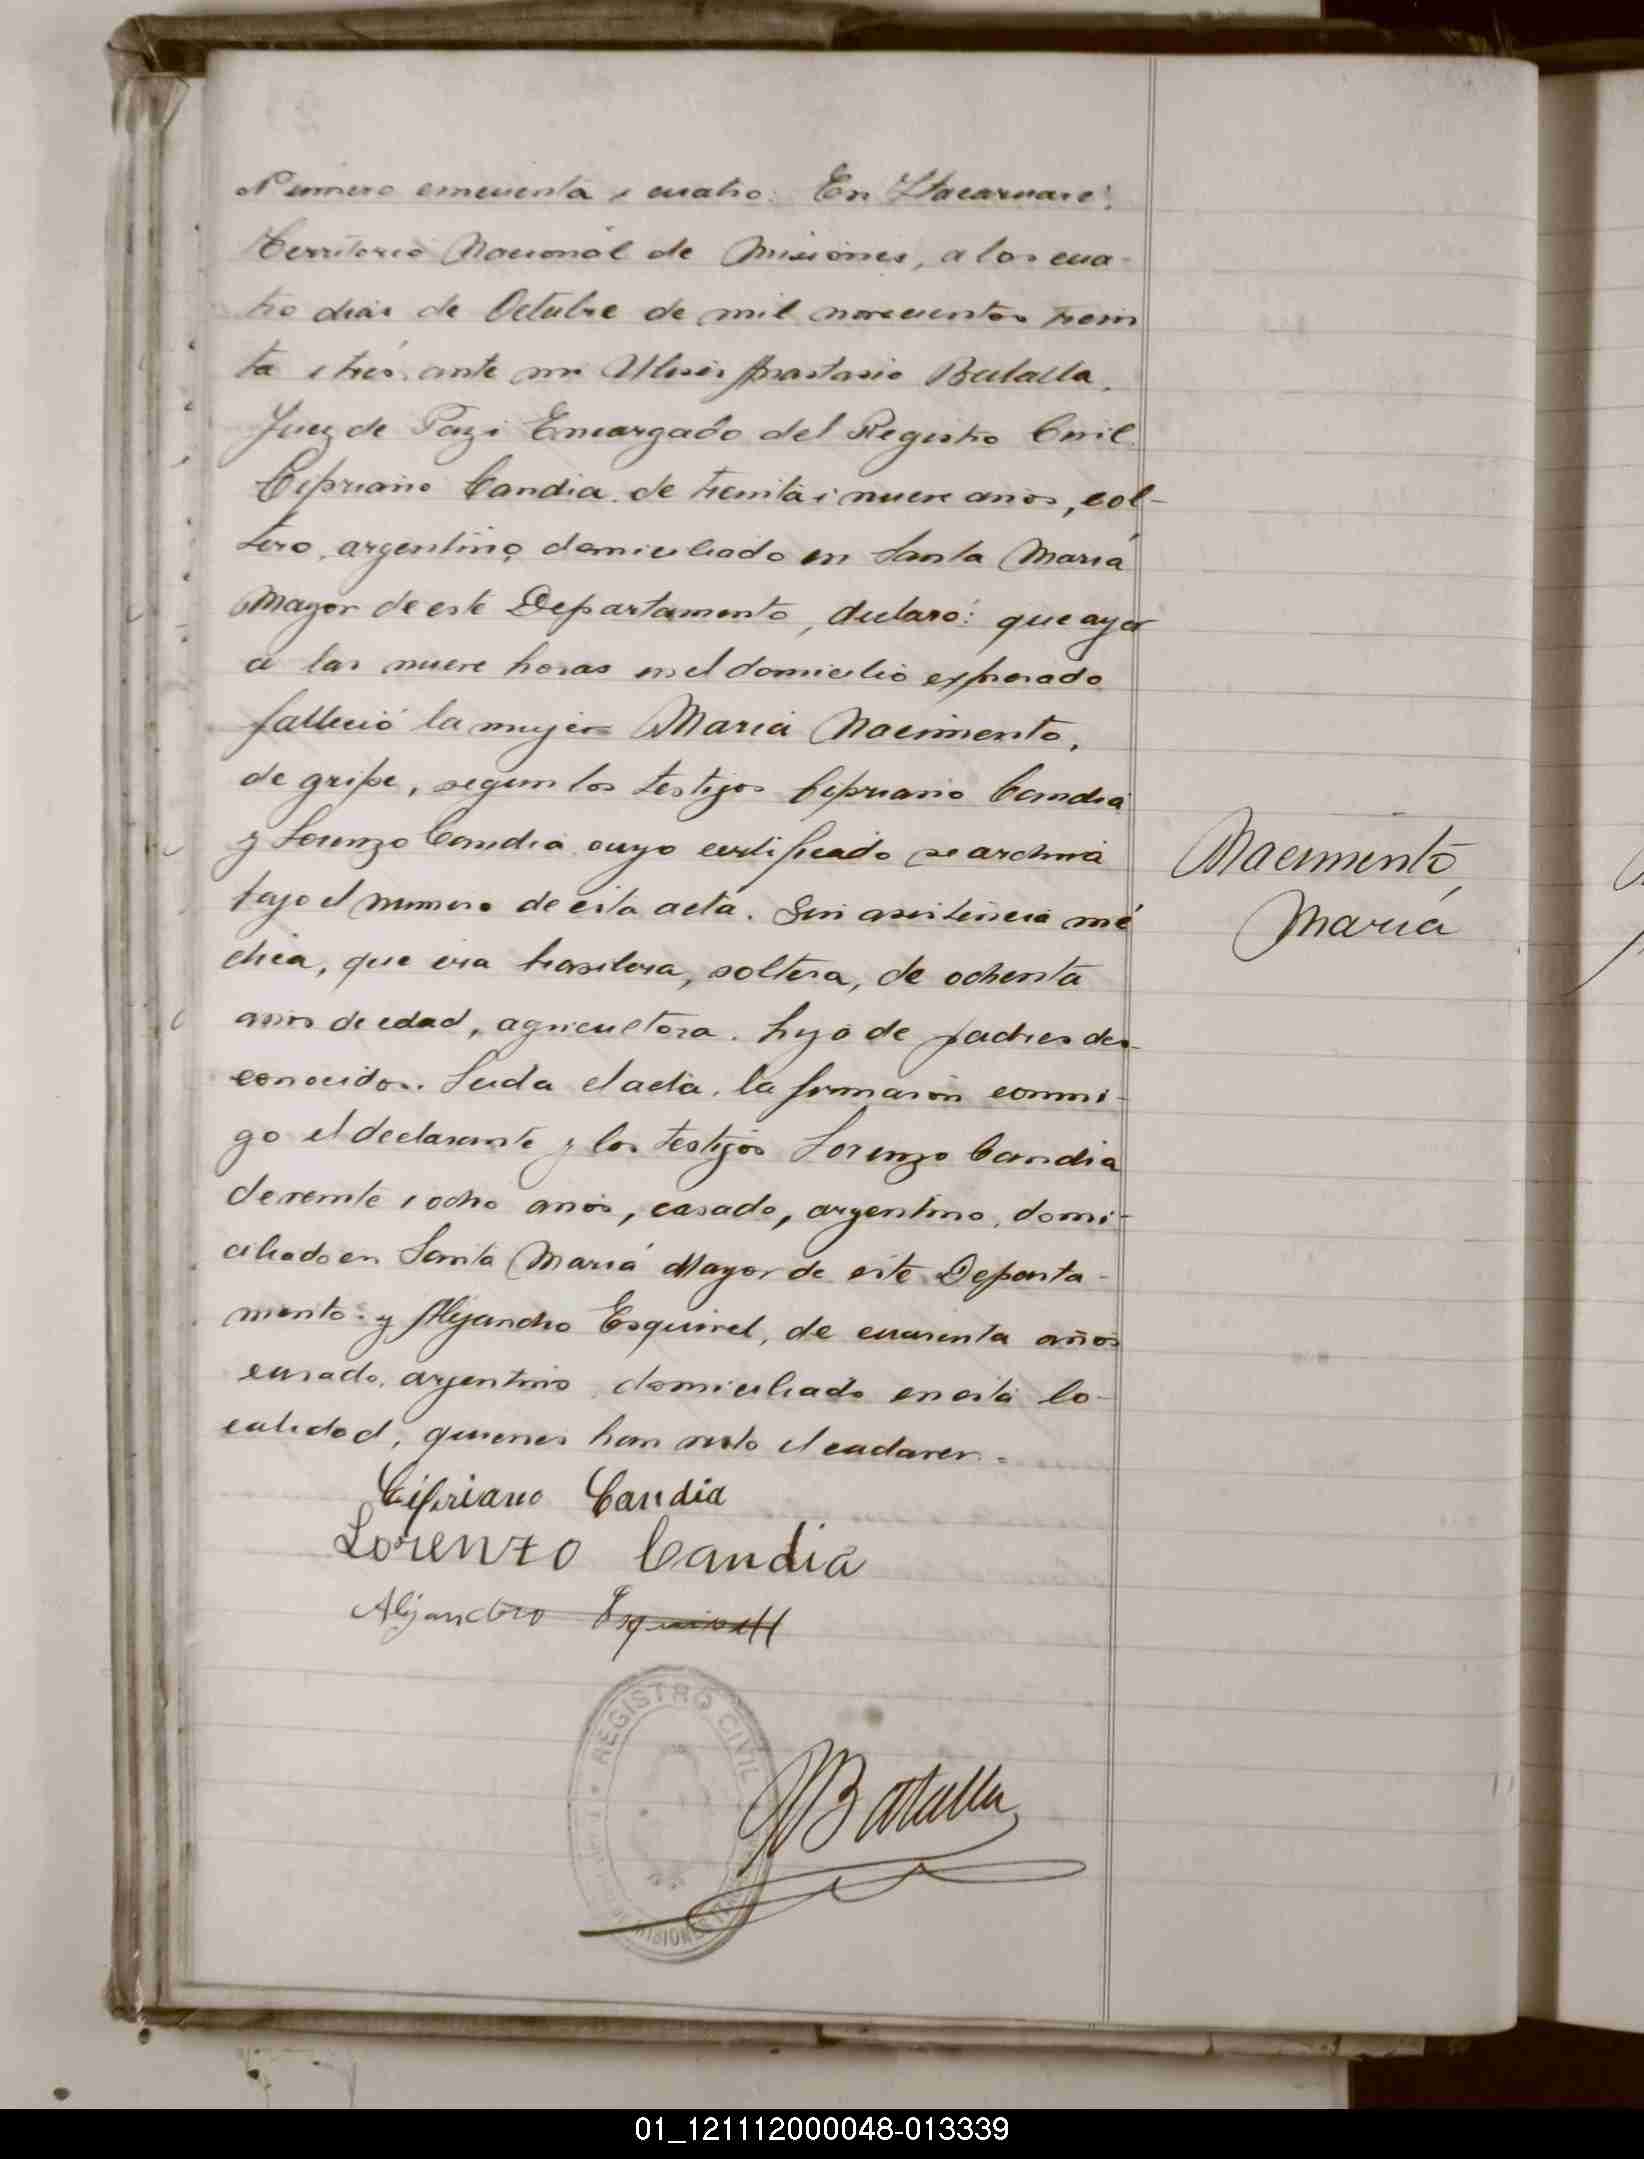 Número cincuenta i cuatro. En Itacaruaré,
Territorio Nacional de Misiones, a los cua-
tro dias de Octubre de mil novecientos trein
ta i tres, ante mi Ulises Anastasio Batalla,
Juez de Paz i Encargado del Registro Civil
Cipriano Candia, de treinta i nueve años, sol-
tero, argentino, domiciliado en Santa María
Mayor de este Departamento, declaró: que ayer
a las nueve horas en el domicilio expresado
falleció la mujer María Nacimento,
de gripe, segun los testigos Cipriano Candia
y Lorenzo Candia cuyo certificado se archiva
bajo el numero de esta acta. Sin asistencia mé
dica, que era brasilera, soltera, de ochenta
años de edad, agricultora. hijo de padres des-
conocidos. Leida el acta, la firmaron conmi-
go el declarante y los testigos Lorenzo Candia
de veinte i ocho años, casado, argentino, domi-
ciliado en Santa María Mayor de este Departa-
mento: y Alejandro Esquivel, de cuarenta años
casado, argentino, domiciliado en esta lo-
calidad, quienes han visto el cadaver.=
Nacimento,
María
Cipriano Candia
Lorenzo Candia
Alijandro Esquivell
REGISTRO CIVIL
MISIONES
Batalla
01_121112000048-013339